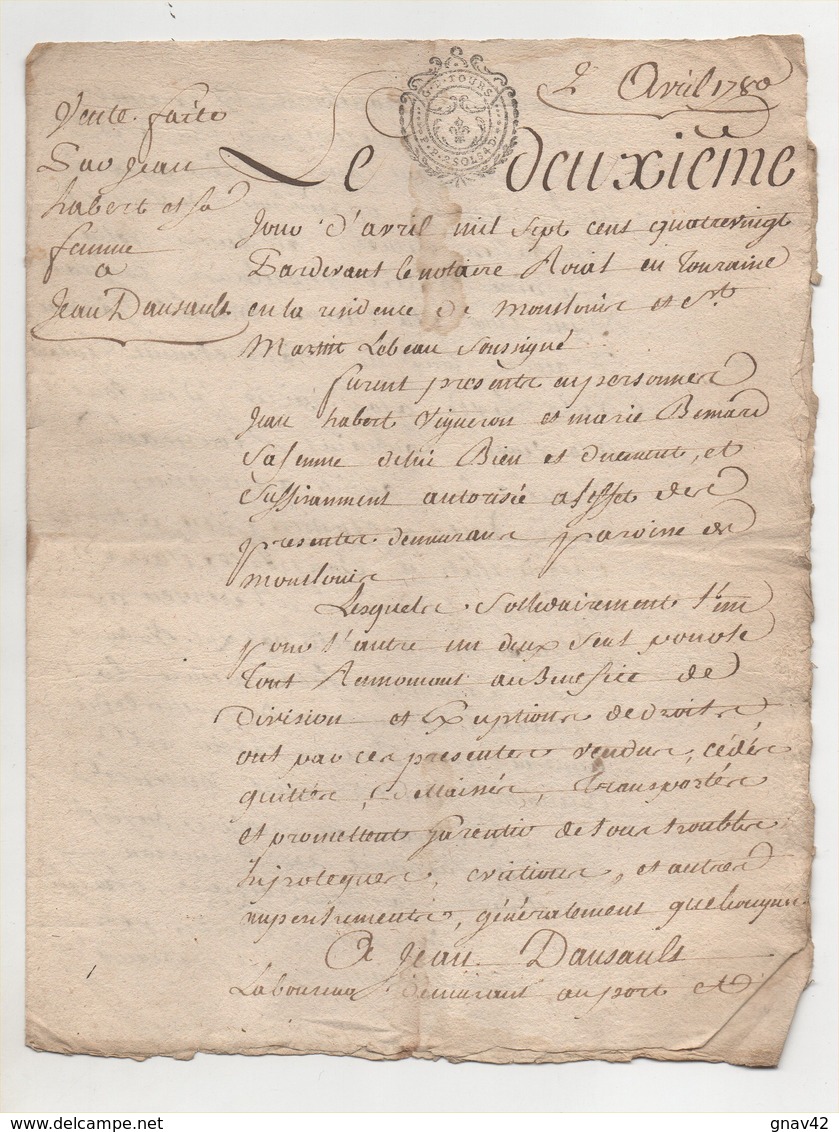 2 Avril 1780
Vente faite
Par Jean
habert et sa
femme
a
Jean Dansault
G. DE TOURS
Le deuxième
Jour d'avril mil sept cent quatrevingt
Pardevant le notaire Roial en Touraine
en la residence de Monslouis et St
Martin Lebeau soussigné
furent presents en personnes
Jean habert Vigneron et marie Bernard
sa femme de lui Bien et duement, et
suffisamment autorisée a l'effet des
presentes demeurans paroisse de
monslouis
Lesquels sollidairement l'un
pour l'autre un deux seul pour le
tout Renonceant au Benefice de
Division et Exceptions de droits
ont par ces presentes vendus, cédés
quittés, dellaissés, transportés
et promettent garentir de tous troubles
hipoteques, evictions, et autres
empechements, généralement quelconques
A Jean Dansault
Laboureur demeurant au port et
www.delcampe.net
gnav42